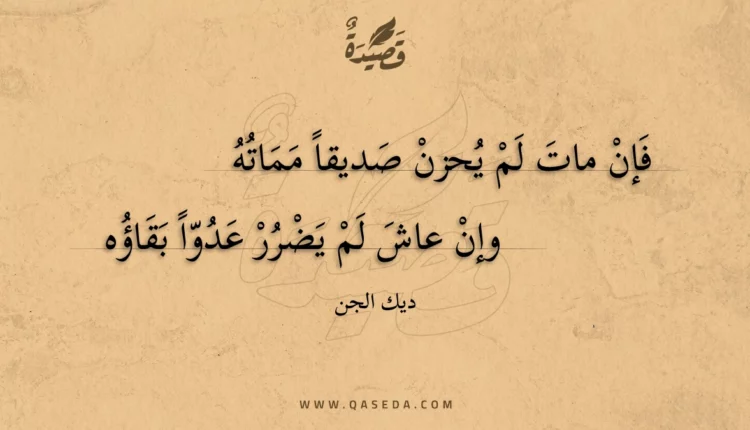 قَصِيْدَةٌ
فَإنْ ماتَ لَمْ يُحزنْ صَديقاً مَمَاتُهُ
وإنْ عاشَ لَمْ يَضْرُرْ عَدُوّاً بَقَاؤُه
ديك الجن
WWW.QASEDA.COM